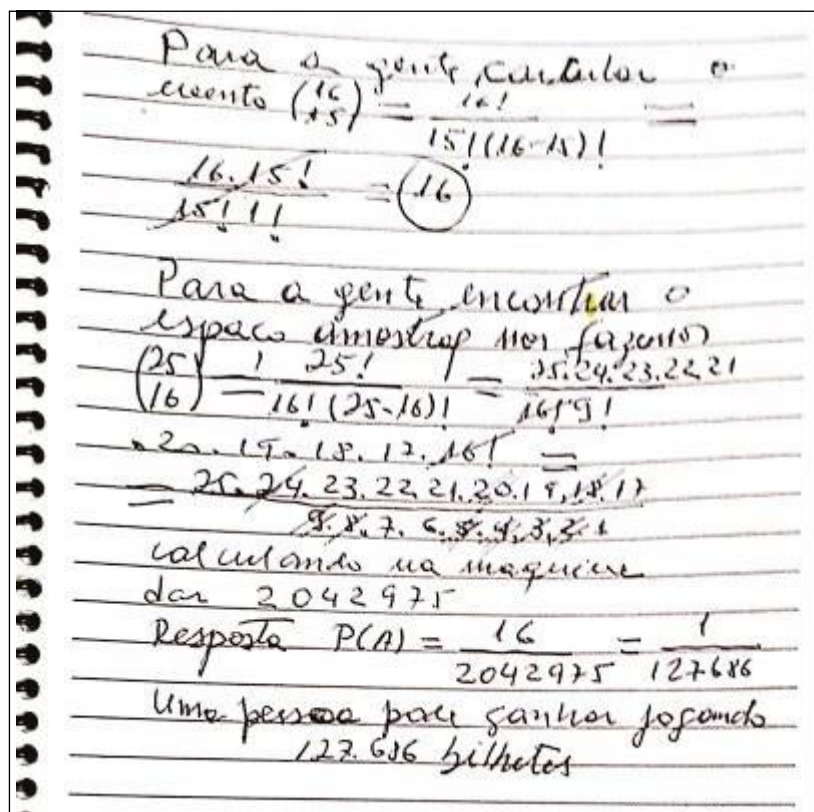 Para a gente calcular o
evento (16 15) = 16! / 15!(16-15)! =
16.15! / 15!1! = 16
Para a gente encontrar o
espaco amostral nos fazemos
(25 16) = 25! / 16!(25-16)! = 25.24.23.22.21 / 16!9!
.20.19.18.17.16! =
= 25.24.23.22.21.20.19.18.17 / 9.8.7.6.5.4.3.2.1
calculando na maquina
dar 2042975
Resposta P(A) = 16 / 2042975 = 1 / 127686
Uma pessoa pode ganhar jogando
127.686 bilhetes